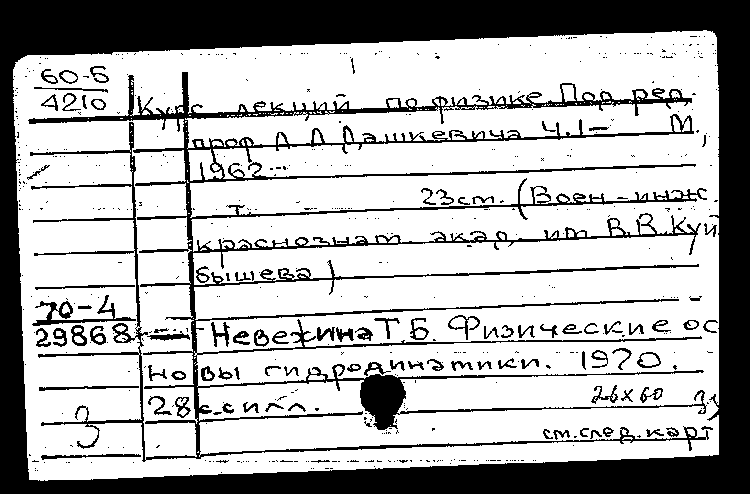 60-Б
4210
Курс лекций по физике. Под ред.
проф. А. Л. Дашкевича Ч. I- М.,
1962-
т. - 23 см. (Воен.-инж.
краснознам. акад. им. В.В. Куй
бышева)
70-4
29868 - Невежина Т.Б. Физические ос
новы гидродинамики. 1970.
28 с. с илл. 26x60
3
см. след. карт